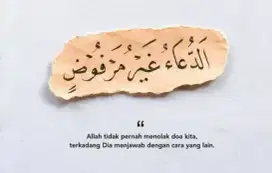 اَلدُّعَاءُ غَيْرُ مَرْفُوْضٍ
“
Allah tidak pernah menolak doa kita,
terkadang Dia menjawab dengan cara yang lain.